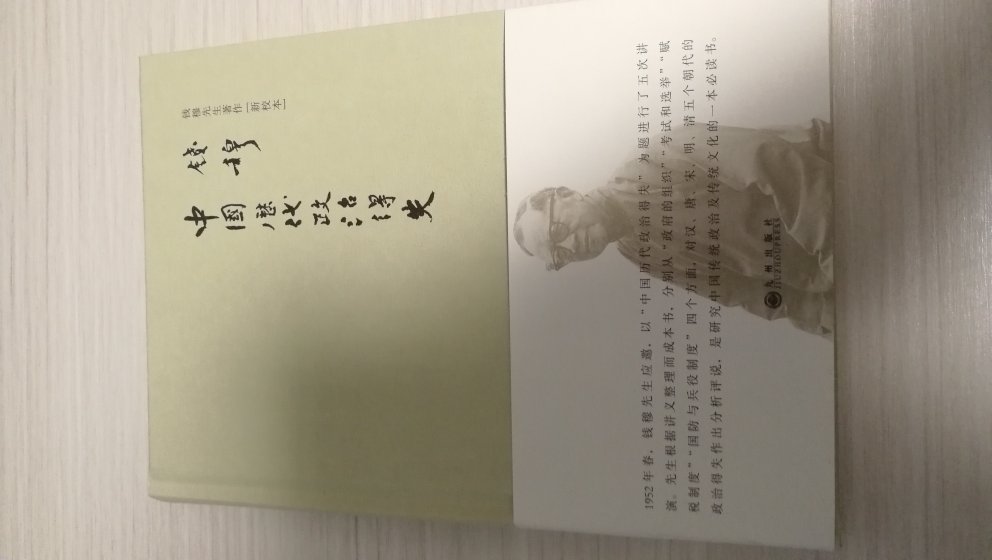 钱穆先生著作[新校本]
钱穆
中國歷代政治得失
1952年春，钱穆先生应邀，以“中国历代政治得失”为题进行了五次讲
演。先生根据讲义整理而成本书，分别从“政府的组织”“考试和选举”“赋
税制度”“国防与兵役制度”四个方面，对汉、唐、宋、明、清五个朝代的
政治得失作出分析评说，是研究中国传统政治及传统文化的一本必读书。
九州出版社
JIUZHOUPRESS